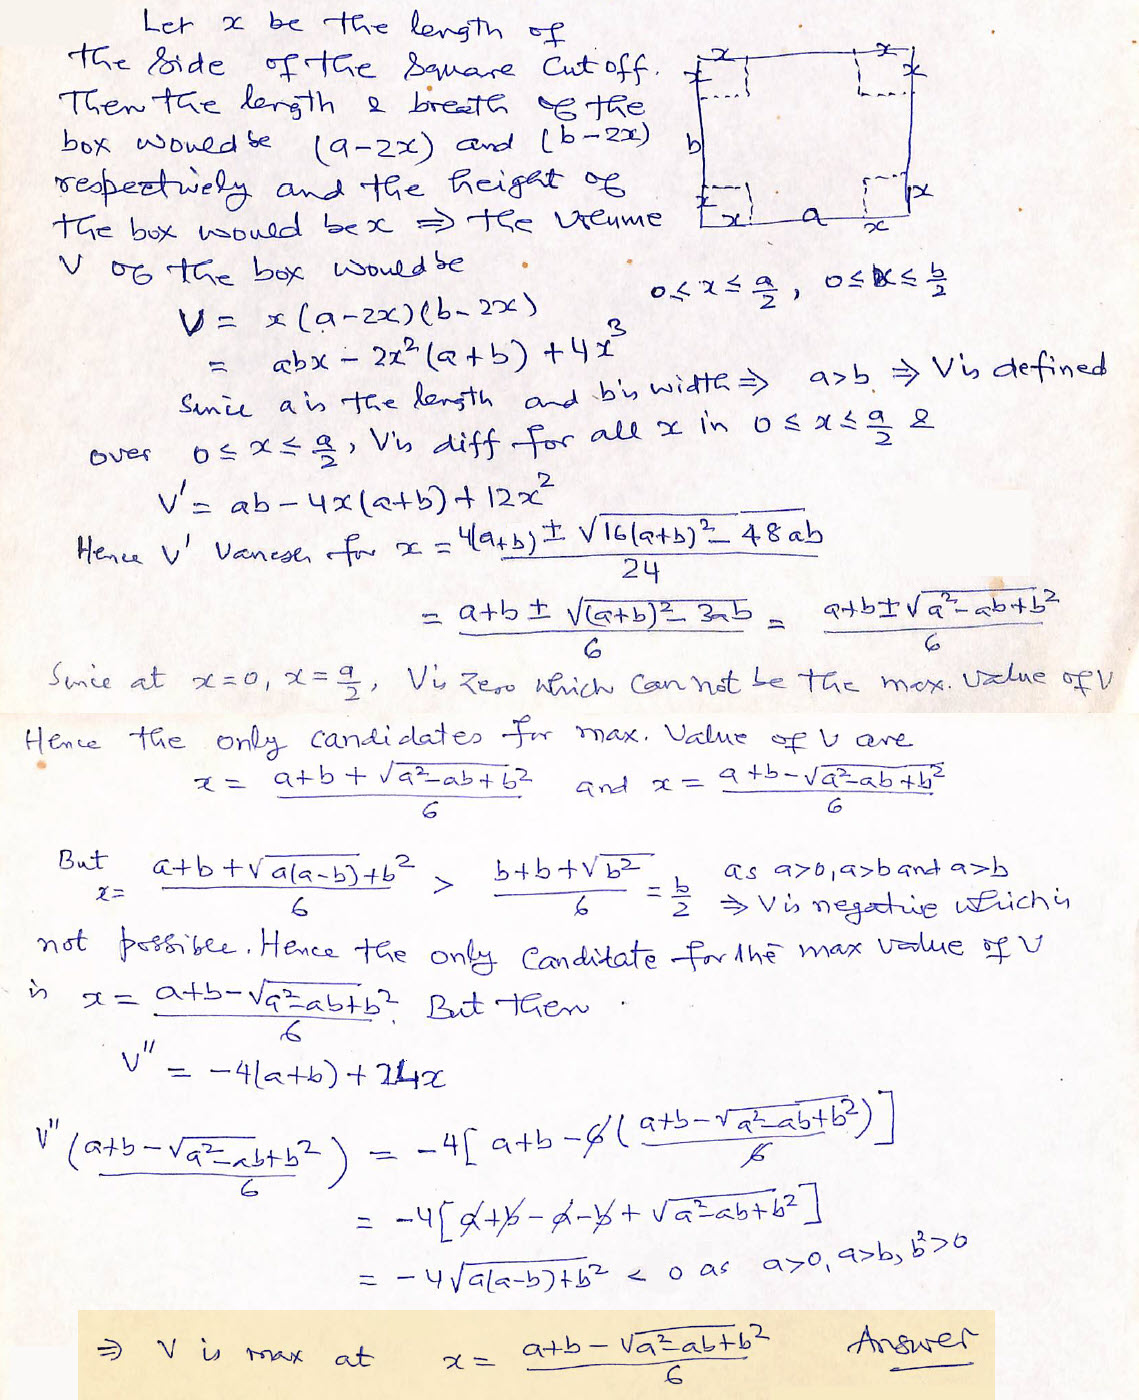 Let x be the length of
the side of the square cut off.
Then the length & breath of the
box would be (a-2x) and (b-2x)
respectively and the height of
the box would be x ⇒ the volume
V of the box would be
x x x x b x x x a x
V = x(a-2x)(b-2x) 0≤x≤a/2, 0≤x≤b/2
= abx - 2x²(a+b) + 4x³
Since a is the length and b is width ⇒ a>b ⇒ V is defined
over 0≤x≤a/2, V is diff for all x in 0≤x≤a/2 &
V' = ab - 4x(a+b) + 12x²
Hence V' vanesh for x = (4(a+b) ± √(16(a+b)² - 48ab))/24
= (a+b ± √((a+b)² - 3ab))/6 = (a+b ± √(a²-ab+b²))/6
Since at x=0, x=a/2, V is zero which can not be the max. value of V
Hence the only candidates for max. value of V are
x = (a+b+√(a²-ab+b²))/6 and x = (a+b-√(a²-ab+b²))/6
But x = (a+b+√(a(a-b)+b²))/6 > (b+b+√b²)/6 = b/2 as a>0, a>b and a>b
⇒ V is negative which is
not possible. Hence the only canditate for the max value of V
is x = (a+b-√(a²-ab+b²))/6. But then
V'' = -4(a+b) + 24x
V''((a+b-√(a²-ab+b²))/6) = -4[a+b-6((a+b-√(a²-ab+b²))/6)]
= -4[a+b-a-b+√(a²-ab+b²)]
= -4√(a(a-b)+b²) < 0 as a>0, a>b, b²>0
⇒ V is max at x = (a+b-√(a²-ab+b²))/6 Answer